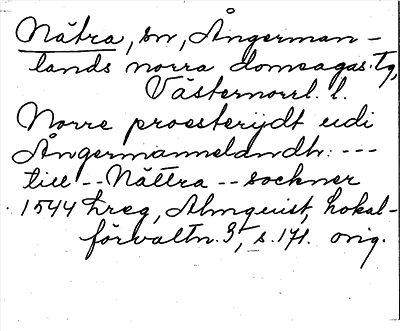 Nätra, sn, Ångerman-
lands norra domsagas tg,
Västernorrl. l.
Norre proesterijdt udi
Ångermannelandh: ---
till -- Nättra -- sockner
1544 hreg, Almquist, Lokal-
förvaltn. 3, s. 171. orig.